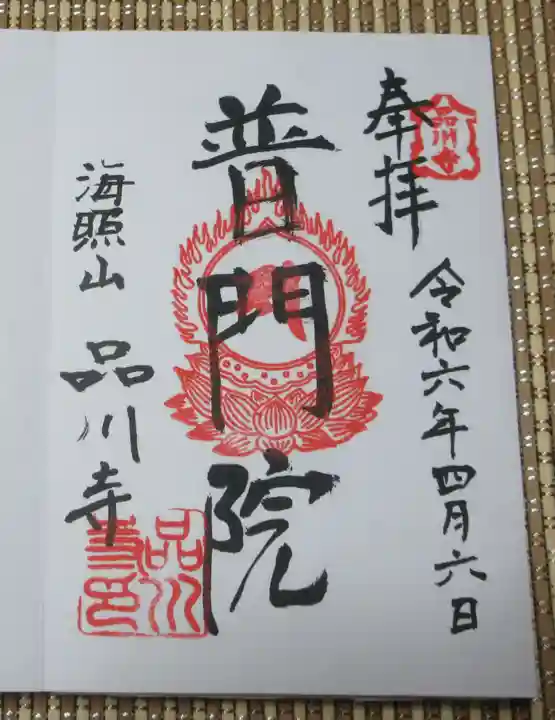 奉拝
令和六年四月六日
普門院
海照山 品川寺
品川寺
品川寺印